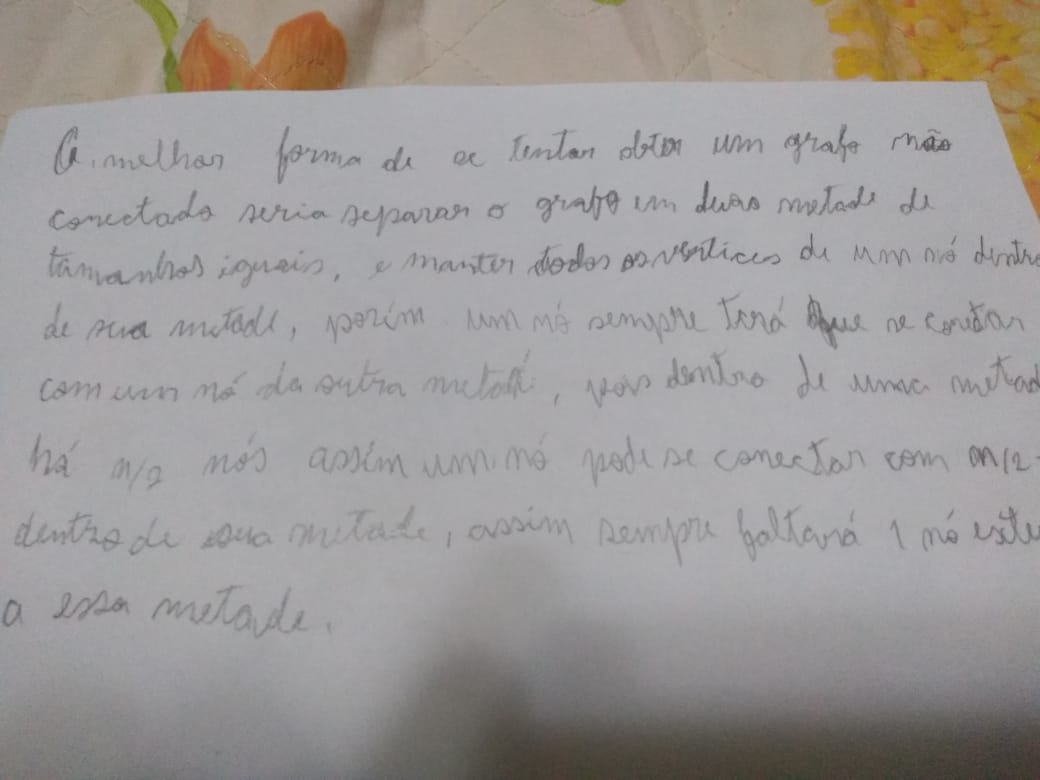 A melhor forma de se tentar obter um grafo não
conectado seria separar o grafo em duas metade de
tamanhos iguais, e manter todos os vértices de um nó dentro
de sua metade, porém um nó sempre terá que se conectar
com um nó da outra metade, pois dentro de uma metad
há n/2 nós assim um nó pode se conectar com n/2-
dentro de sua metade, assim sempre faltará 1 nó exte
a essa metade.